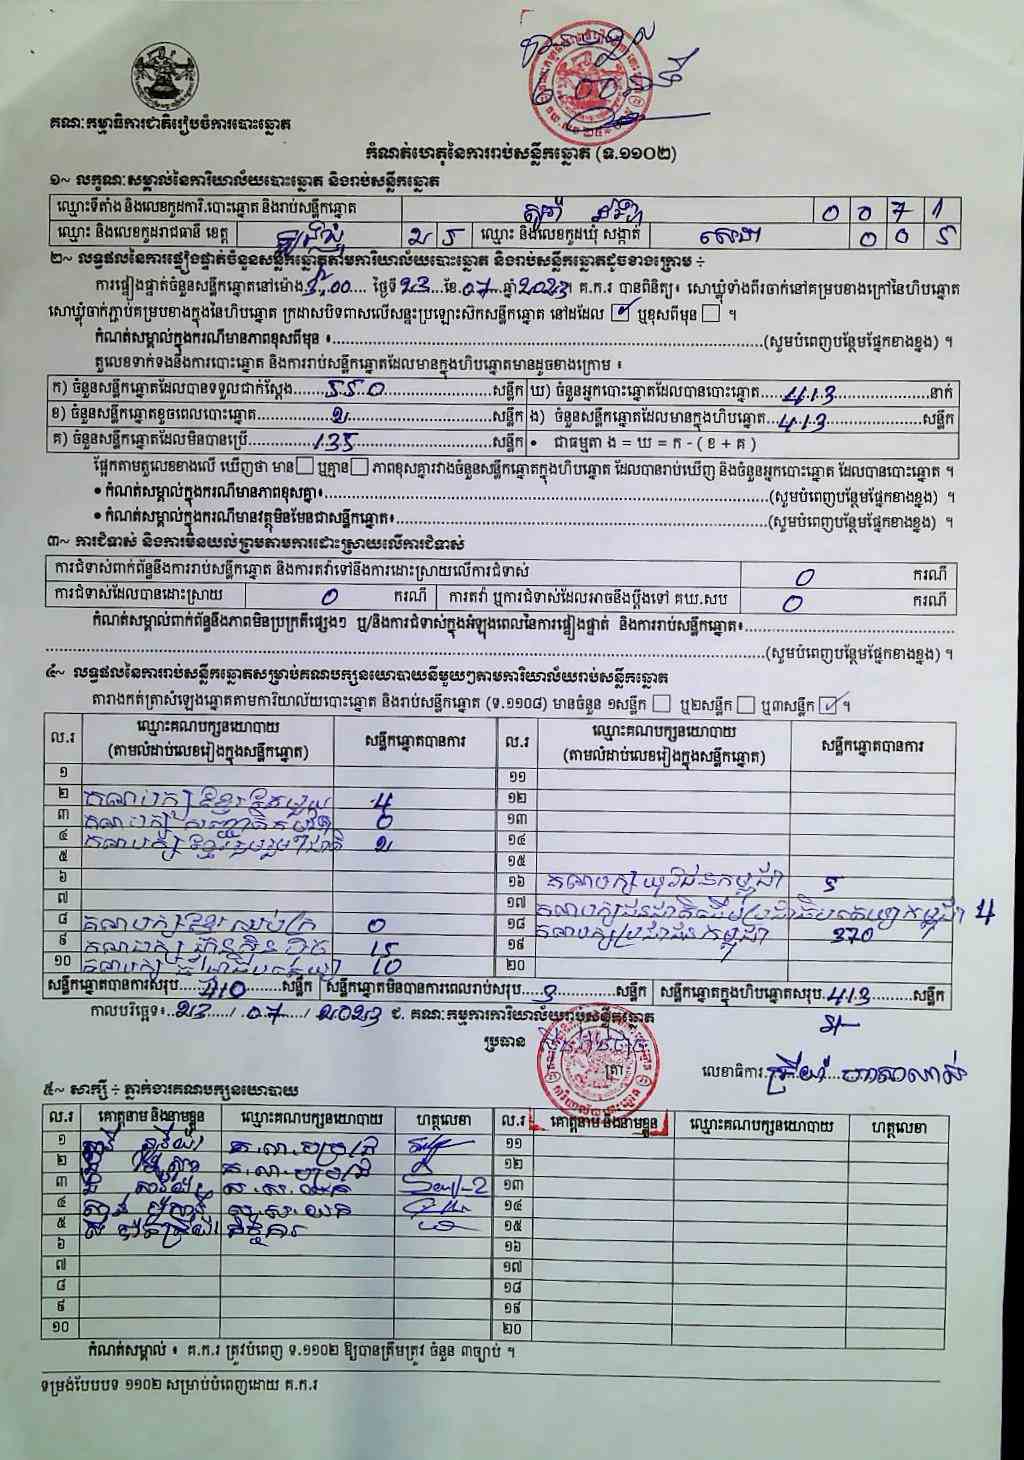 គណៈកម្មាធិការជាតិរៀបចំការបោះឆ្នោត
កំណត់ហេតុនៃការរាប់សន្លឹកឆ្នោត (ទ.១១០២)
១~ លក្ខណៈសម្គាល់នៃការិយាល័យបោះឆ្នោត និងរាប់សន្លឹកឆ្នោត
ឈ្មោះទីតាំង និងលេខកូដការិ.បោះឆ្នោត និងរាប់សន្លឹកឆ្នោត 0 0 7 1
ឈ្មោះ និងលេខកូដរាជធានី ខេត្ត ២ 5 ឈ្មោះ និងលេខកូដឃុំ សង្កាត់ 0 0 5
២~ លទ្ធផលនៃការផ្ទៀងផ្ទាត់ចំនួនសន្លឹកឆ្នោតតាមការិយាល័យបោះឆ្នោត និងរាប់សន្លឹកឆ្នោតដូចខាងក្រោម ÷
ការផ្ទៀងផ្ទាត់ចំនួនសន្លឹកឆ្នោតនៅម៉ោង 3:00 ថ្ងៃទី 23 ខែ 07 ឆ្នាំ 2023។ គ.ក.រ បានពិនិត្យ៖ សោឃ្លុំទាំងពីរចាក់នៅគម្របខាងក្រៅនៃហិបឆ្នោត
សោឃ្លុំចាក់ភ្ជាប់គម្របខាងក្នុងនៃហិបឆ្នោត ក្រដាសបិទពាសលើសន្ទះប្រឡោះស៊កសន្លឹកឆ្នោត នៅដដែល ☑ ឬខុសពីមុន ☐ ។
កំណត់សម្គាល់ក្នុងករណីមានភាពខុសពីមុន ៖ (សូមបំពេញបន្ថែមផ្នែកខាងខ្នង) ។
តួលេខទាក់ទងនឹងការបោះឆ្នោត និងការរាប់សន្លឹកឆ្នោតដែលមានក្នុងហិបឆ្នោតមានដូចខាងក្រោម ៖
ក) ចំនួនសន្លឹកឆ្នោតដែលបានទទួលជាក់ស្តែង 550 សន្លឹក ឃ) ចំនួនអ្នកបោះឆ្នោតដែលបានបោះឆ្នោត 413 នាក់
ខ) ចំនួនសន្លឹកឆ្នោតខូចពេលបោះឆ្នោត 2 សន្លឹក ង) ចំនួនសន្លឹកឆ្នោតដែលមានក្នុងហិបឆ្នោត 413 សន្លឹក
គ) ចំនួនសន្លឹកឆ្នោតដែលមិនបានប្រើ 135 សន្លឹក • ជាធម្មតា ង = ឃ = ក - ( ខ + គ )
ផ្អែកតាមតួលេខខាងលើ ឃើញថា មាន ☐ ឬគ្មាន ☐ ភាពខុសគ្នារវាងចំនួនសន្លឹកឆ្នោតក្នុងហិបឆ្នោត ដែលបានរាប់ឃើញ និងចំនួនអ្នកបោះឆ្នោត ដែលបានបោះឆ្នោត ។
• កំណត់សម្គាល់ក្នុងករណីមានភាពខុសគ្នា៖ (សូមបំពេញបន្ថែមផ្នែកខាងខ្នង) ។
• កំណត់សម្គាល់ក្នុងករណីមានវត្ថុមិនមែនជាសន្លឹកឆ្នោត៖ (សូមបំពេញបន្ថែមផ្នែកខាងខ្នង) ។
៣~ ការជំទាស់ និងការមិនយល់ព្រមតាមការដោះស្រាយលើការជំទាស់
ការជំទាស់ពាក់ព័ន្ធនឹងការរាប់សន្លឹកឆ្នោត និងការតវ៉ាទៅនឹងការដោះស្រាយលើការជំទាស់ 0 ករណី
ការជំទាស់ដែលបានដោះស្រាយ 0 ករណី ការតវ៉ា ឬការជំទាស់ដែលអាចនឹងប្តឹងទៅ គឃ.សប 0 ករណី
កំណត់សម្គាល់ពាក់ព័ន្ធនឹងភាពមិនប្រក្រតីផ្សេងៗ ឬ/និងការជំទាស់ក្នុងអំឡុងពេលនៃការផ្ទៀងផ្ទាត់ និងការរាប់សន្លឹកឆ្នោត៖
(សូមបំពេញបន្ថែមផ្នែកខាងខ្នង) ។
៤~ លទ្ធផលនៃការរាប់សន្លឹកឆ្នោតសម្រាប់គណបក្សនយោបាយនីមួយៗតាមការិយាល័យរាប់សន្លឹកឆ្នោត
តារាងកត់ត្រាសំឡេងឆ្នោតតាមការិយាល័យបោះឆ្នោត និងរាប់សន្លឹកឆ្នោត (ទ.១១០៨) មានចំនួន ១សន្លឹក ☐ ឬ២សន្លឹក ☐ ឬ៣សន្លឹក ☑ ។
ល.រ ឈ្មោះគណបក្សនយោបាយ (តាមលំដាប់លេខរៀងក្នុងសន្លឹកឆ្នោត) សន្លឹកឆ្នោតបានការ ល.រ ឈ្មោះគណបក្សនយោបាយ (តាមលំដាប់លេខរៀងក្នុងសន្លឹកឆ្នោត) សន្លឹកឆ្នោតបានការ
១ ១១
២ គណបក្សខ្មែរតែមួយ 4 ១២
៣ គណបក្ស 0 ១៣
៤ គណបក្សខ្មែររួបរួមជាតិ 2 ១៤
៥ ១៥
៦ ១៦ គណបក្សយុវជនកម្ពុជា 5
៧ ១៧ គណបក្សជនជាតិដើមប្រជាធិបតេយ្យកម្ពុជា 4
៨ គណបក្សខ្មែរឈប់ក្រ 0 ១៨ គណបក្សប្រជាជនកម្ពុជា 370
៩ គណបក្សហ៊្វុនស៊ិនប៉ិច 15 ១៩
១០ គណបក្ស 10 ២០
សន្លឹកឆ្នោតបានការសរុប 410 សន្លឹក សន្លឹកឆ្នោតមិនបានការពេលរាប់សរុប 3 សន្លឹក សន្លឹកឆ្នោតក្នុងហិបឆ្នោតសរុប 413 សន្លឹក
កាលបរិច្ឆេទ៖ 23 / 07 / 2023 ជ. គណៈកម្មការការិយាល័យរាប់សន្លឹកឆ្នោត
ប្រធាន ត្រា លេខាធិការ
៥~ សាក្សី ÷ ភ្នាក់ងារគណបក្សនយោបាយ
ល.រ គោត្តនាម និងនាមខ្លួន ឈ្មោះគណបក្សនយោបាយ ហត្ថលេខា ល.រ គោត្តនាម និងនាមខ្លួន ឈ្មោះគណបក្សនយោបាយ ហត្ថលេខា
១ ១១
២ ១២
៣ ស.ស.យ.ក ១៣
៤ ស.ស.យ.ក ១៤
៥ ១៥
៦ ១៦
៧ ១៧
៨ ១៨
៩ ១៩
១០ ២០
កំណត់សម្គាល់ ៖ គ.ក.រ ត្រូវបំពេញ ទ.១១០២ ឱ្យបានត្រឹមត្រូវ ចំនួន ៣ច្បាប់ ។
ទម្រង់បែបបទ ១១០២ សម្រាប់បំពេញដោយ គ.ក.រ